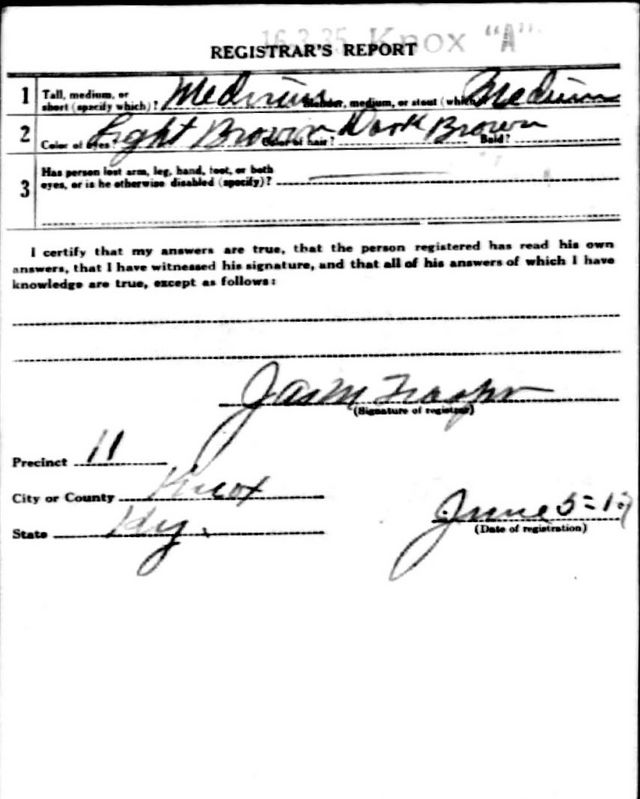 16.2.35 Knox "A"
REGISTRAR'S REPORT
1 Tall, medium, or short (specify which)? Medium Slender, medium, or stout (which)? Medium
2 Color of eyes? Light Brown Color of hair? Dark Brown Bald?
3 Has person lost arm, leg, hand, foot, or both
eyes, or is he otherwise disabled (specify)?
I certify that my answers are true, that the person registered has read his own
answers, that I have witnessed his signature, and that all of his answers of which I have
knowledge are true, except as follows:
Jas M
(Signature of registrar)
Precinct 11
City or County Knox
State Ky.
June 5-17
(Date of registration)